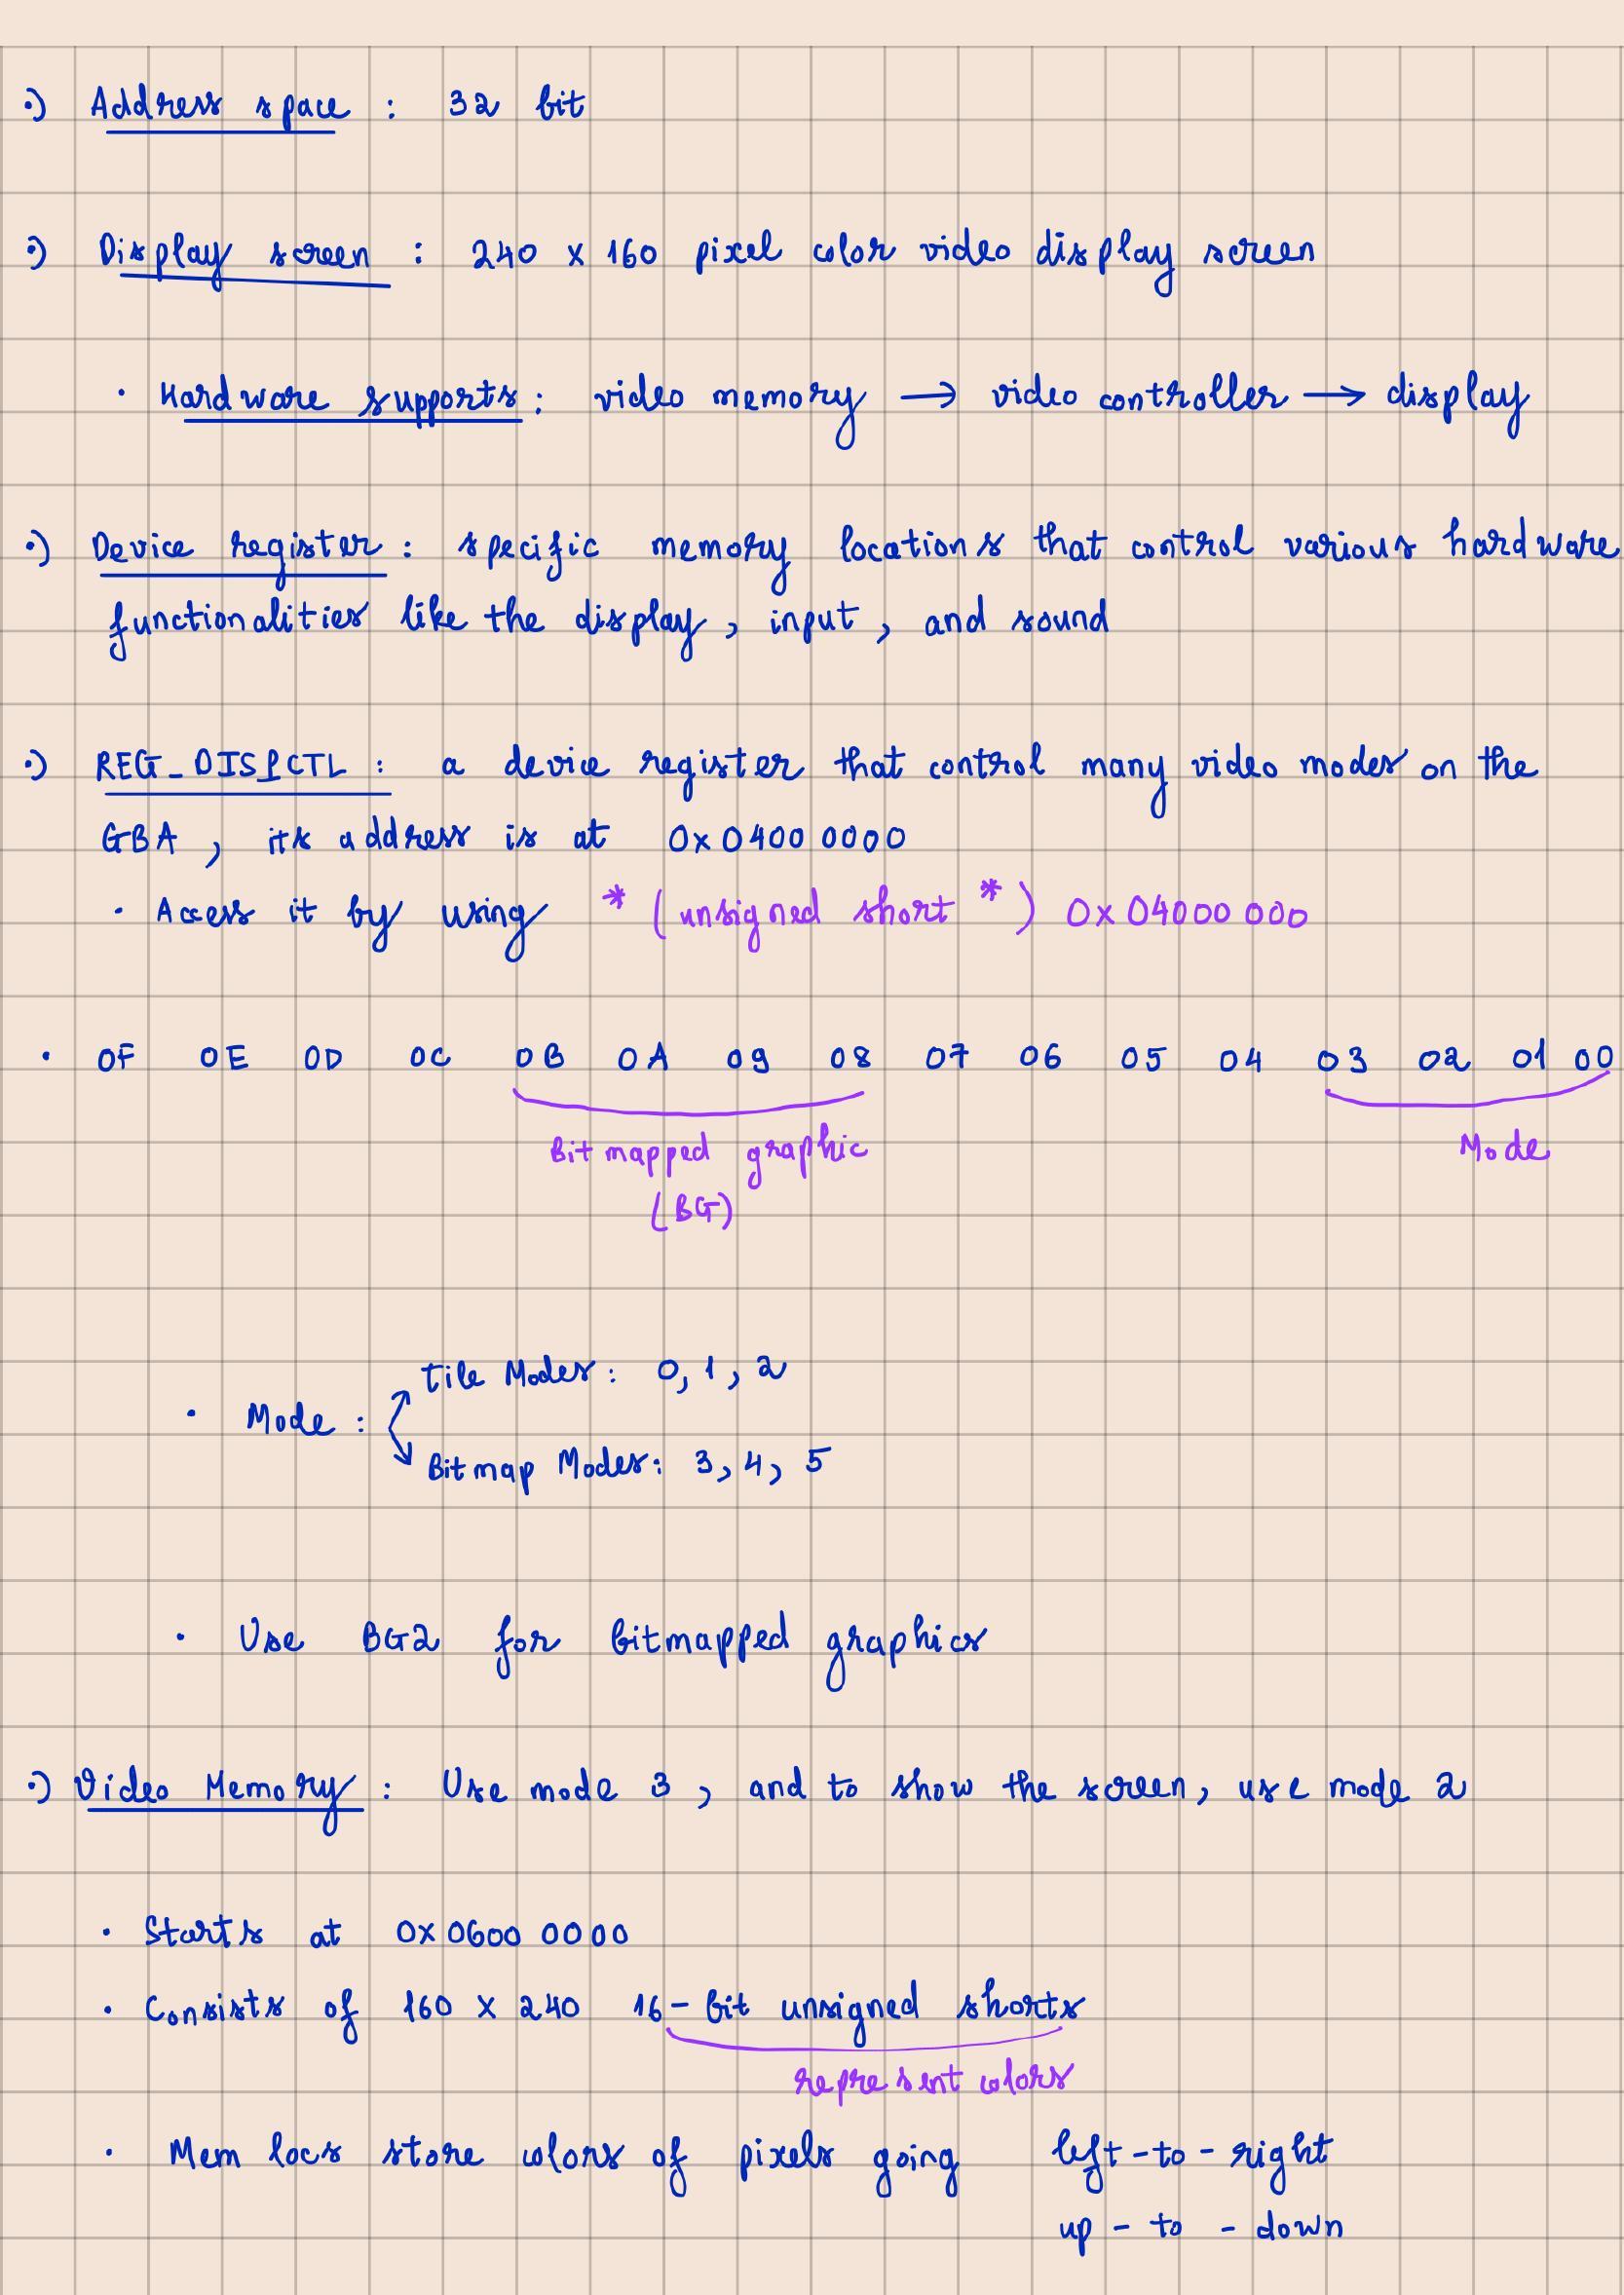 ·) Address space : 32 bit
·) Display screen : 240 x 160 pixel color video display screen
· Hardware supports : video memory → video controller → display
·) Device register : specific memory locations that control various hardware
functionalities like the display, input, and sound
·) REG_DISPCTL : a device register that control many video modes on the
GBA, its address is at 0x0400 0000
· Access it by using * (unsigned short *) 0x04000 000
· 0F 0E 0D 0C 0B 0A 09 08 07 06 05 04 03 02 01 00
Bitmapped graphic Mode
(BG)
Tile Modes : 0, 1, 2
· Mode :
Bitmap Modes : 3, 4, 5
· Use BG2 for bitmapped graphics
·) Video Memory : Use mode 3, and to show the screen, use mode 2
· Starts at 0x0600 0000
· Consists of 160 x 240 16-bit unsigned shorts
represent colors
· Mem locs store colors of pixels going left-to-right
up-to-down